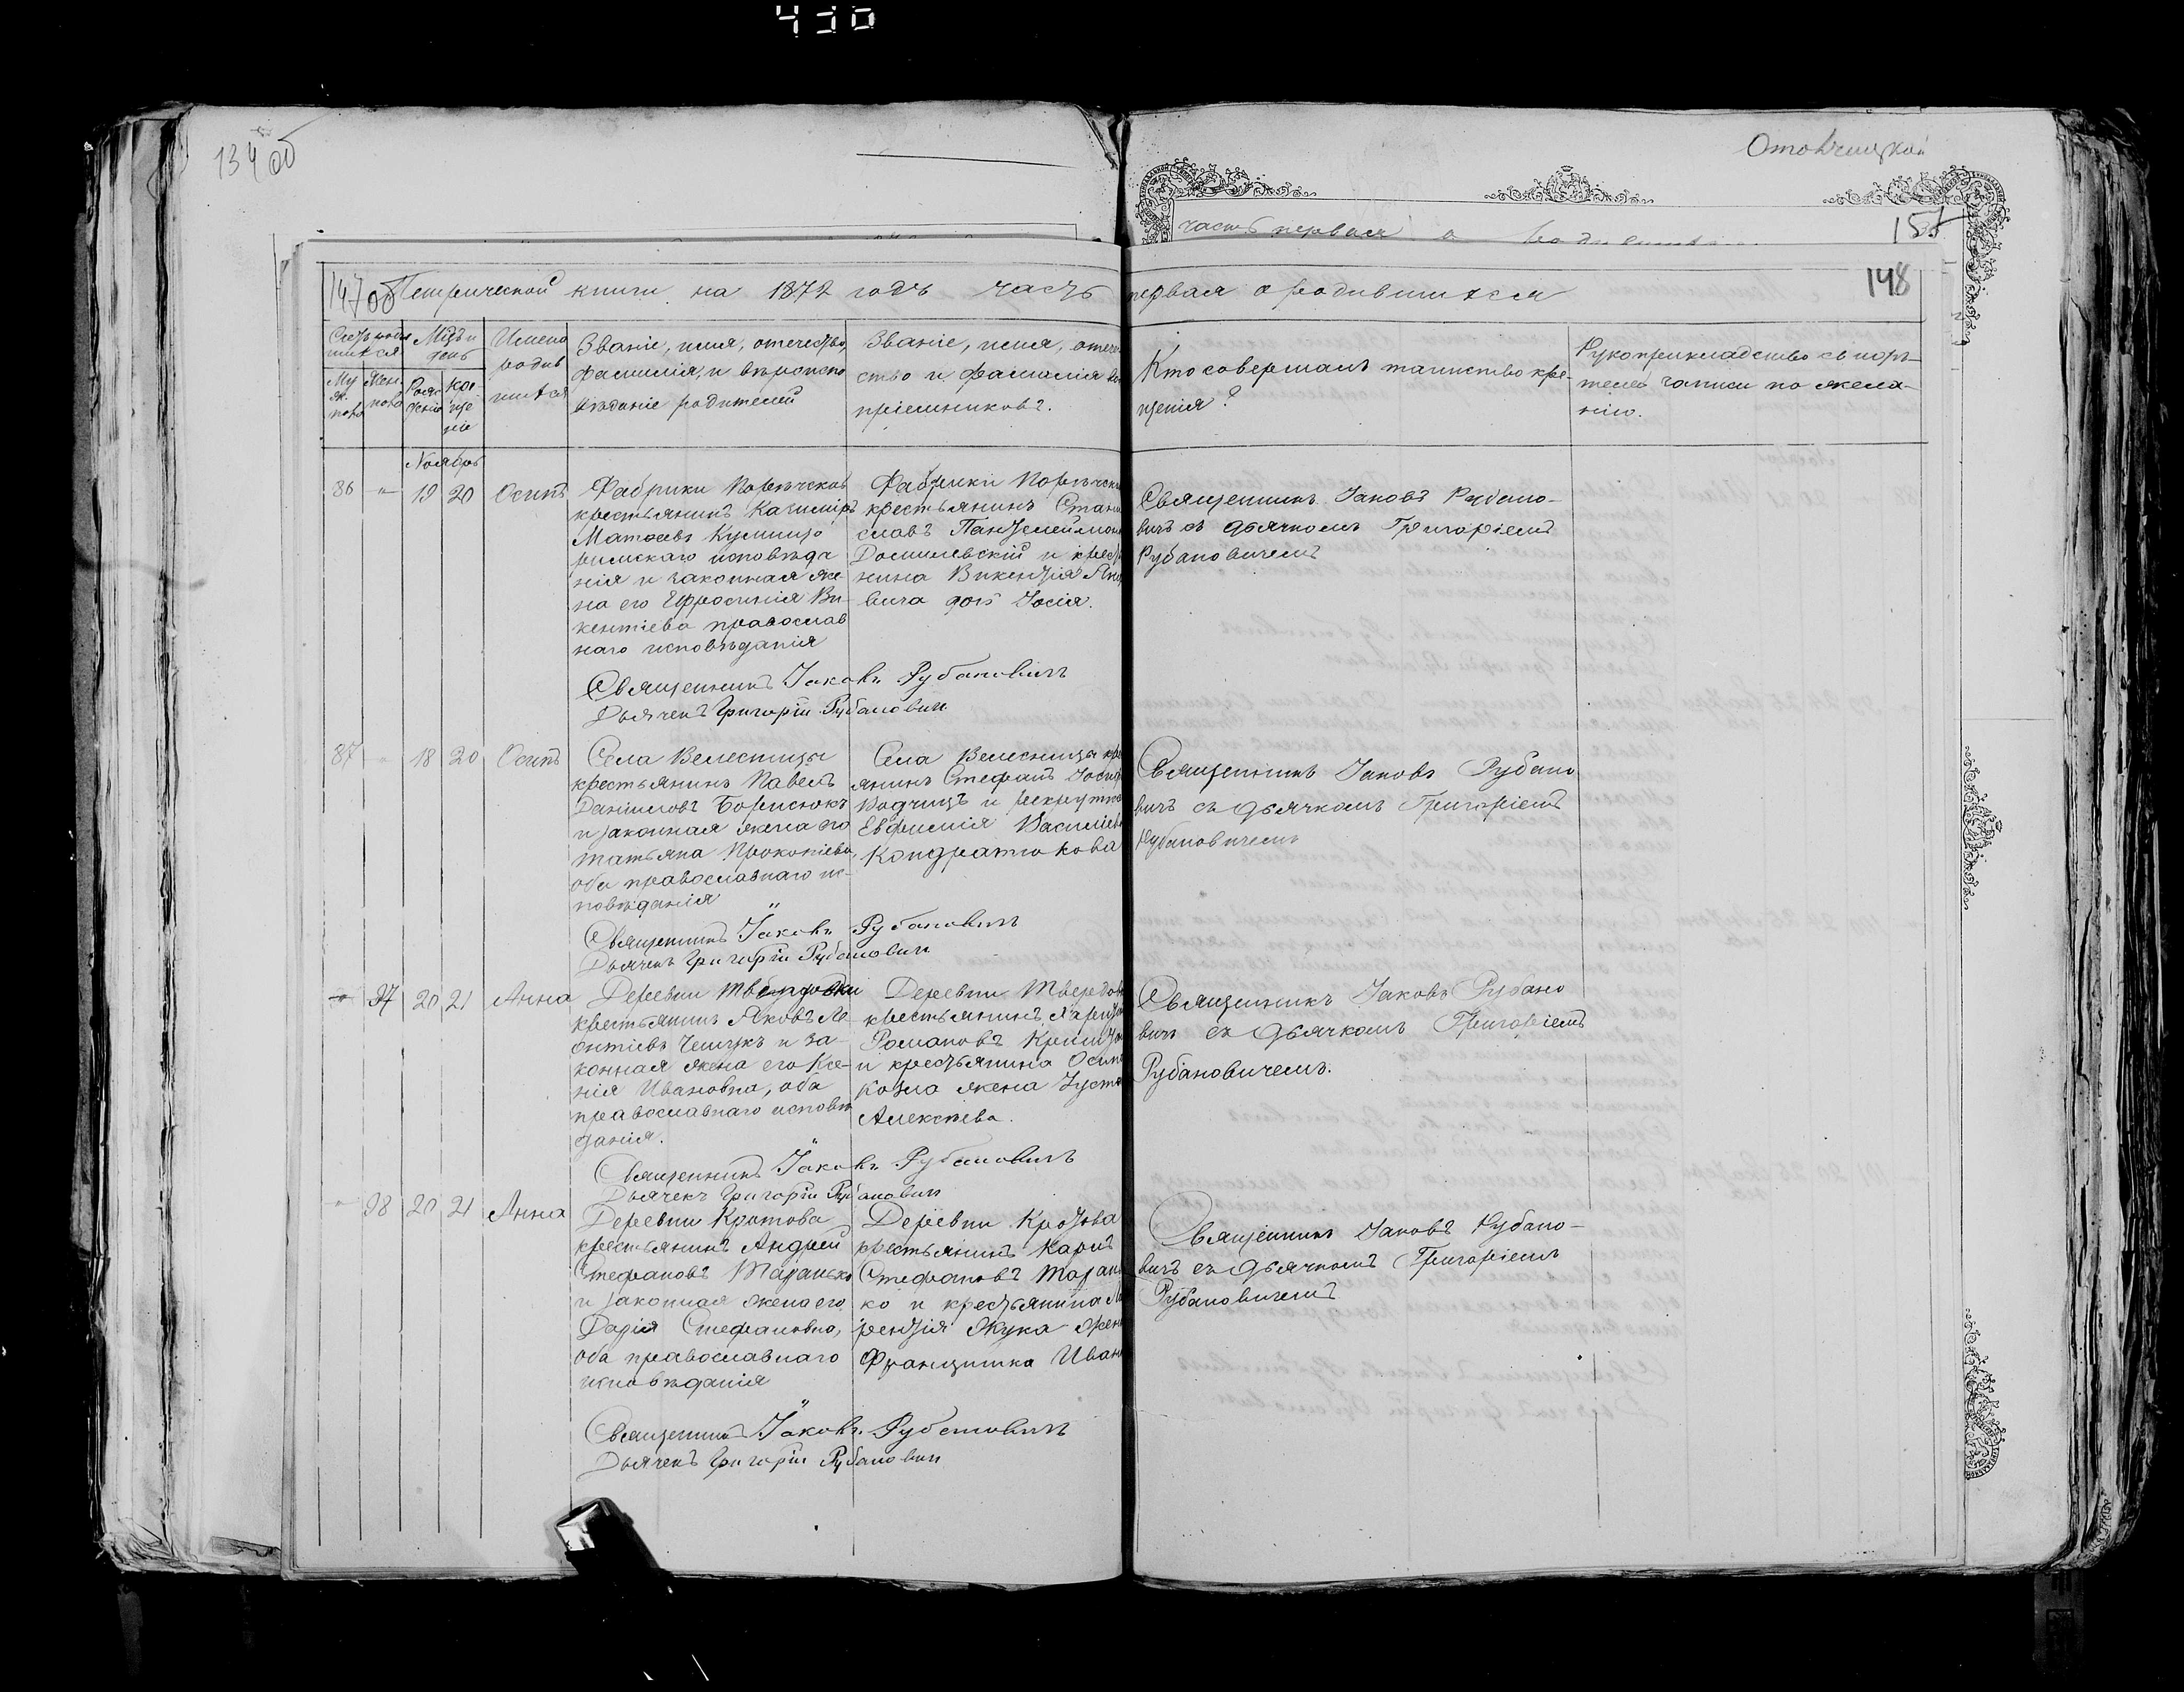 430
134 об
Отовчицкой
часть первая о
155
147 об
Метрической книги на 1872 годъ часть первая о родившихся
148
Счетъ родив
шихся
Му
ж.
пола
Жен.
пола
Мцъ и
день
Рож
денія
Кре-
ще
нія
Имена
родив
шихся
Званіе, имя, отчество,
фамилія, и вѣроиспо
вѣданіе родителей
Званіе, имя, отече
ство и фамилія во
пріемниковъ.
Кто совершалъ таинство кре-
щенія?
Рукоприкладство свидѣ-
телей записи по жела-
нію.
Ноябрь
86 " 19 20 Осипъ
Фабрики Порѣчской
крестьянинъ Казимiръ
Матѳеевъ
римскаго исповѣда
нія и законная же-
на его Ефросинія Ви-
кентіева православ
наго исповѣданія
Фабрики Порѣчской
крестьянинъ Стани
славъ Пантелеймоновъ
Домилевскій и крестья
нина Викентія
вича дочь Зосія.
Священникъ Іаковъ Рубано-
вичъ съ дьячкомъ Григоріемъ
Рубановичемъ
Священникъ Іаковъ Рубановичъ
Дьячекъ Григорій Рубанович
87 " 18 20 Осипъ
Села Велесницы
крестьянинъ Павелъ
Даніиловъ Борисюкъ
и законная жена его
Татьяна Прокопіева,
оба православнаго ис-
повѣданія
Села Велесницы кре
янинъ Стефанъ
Водчицъ и рекрутка
Евфимія Василіева
Кондратюкова
Священникъ Іаковъ Рубано
вичъ съ дьячкомъ Григоріемъ
Рубановичемъ
Священникъ Іаковъ Рубановичъ
Дьячекъ Григорій Рубанович
" 97 20 21 Анна
Деревни Твердовки
крестьянинъ Яковъ Ле-
онтіевъ Чешукъ и за-
конная жена его Ксе-
нія Ивановна, оба
православнаго исповѣ
данія.
Деревни Твердовки
крестьянинъ
Романовъ
и крестьянина Осипа
Козла жена Іуста
Алексѣева.
Священникъ Іаковъ Рубано
вичъ съ дьячкомъ Григоріемъ
Рубановичемъ.
Священникъ Іаковъ Рубановичъ
Дьячекъ Григорій Рубанович
" 98 20 21 Анна
Деревни Кротова
крестьянинъ Андрей
Стефановъ Таранько
и законная жена его
Дарія Стефановна,
оба православнаго
исповѣданія
Деревни Кротова
крестьянинъ Карпъ
Стефановъ Тарань
ко и крестьянина Ла
рентія Жука жена
Францишка Иван
Священникъ Іаковъ Рубано-
вичъ съ дьячкомъ Григоріемъ
Рубановичемъ
Священникъ Іаковъ Рубановичъ
Дьячекъ Григорій Рубанович